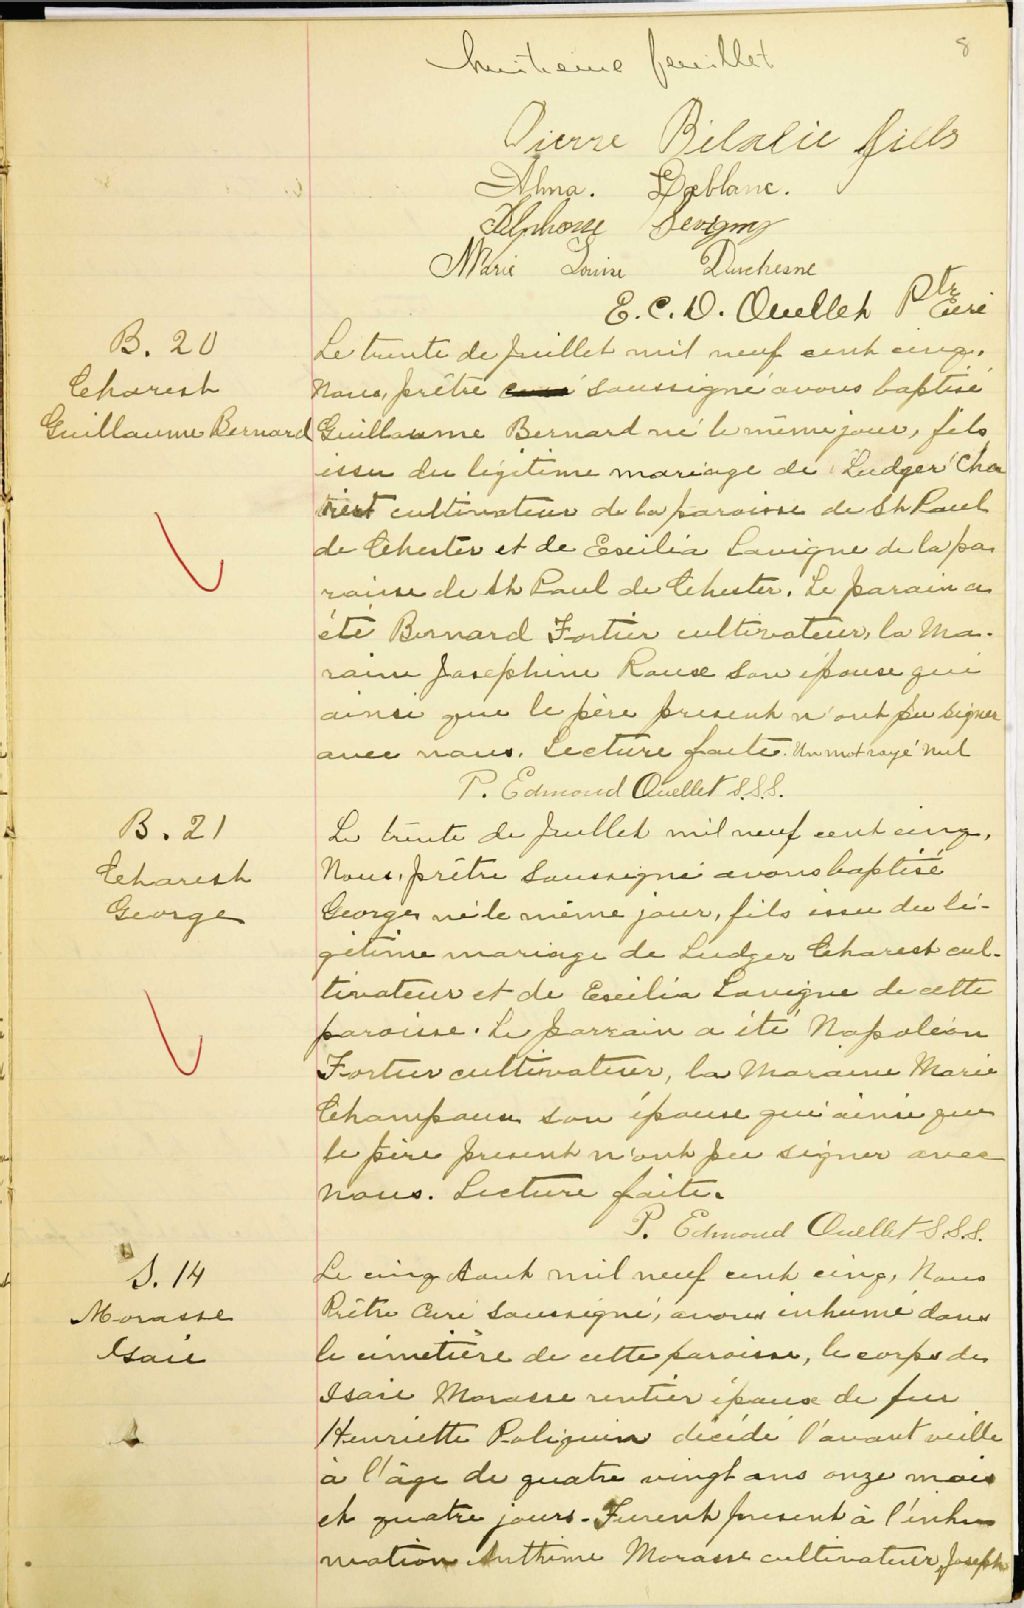 8
huitieme feuillet
Pierre Bilodie fiels
Alma. Leblanc.
Alphonse Sevigny
Marie Louise Duchesne
E. C. D. Ouellet Ptr Curé
B. 20
Charest
Guillaume Bernard
Le trente de Juillet mil neuf cent cinq,
Nous, prêtre soussigné avons baptisé
Guillaume Bernard né le même jour, fils
issu du légitime mariage de Ludger Cha
rest cultivateur de la paroisse de St Paul
de Chester et de Exilia Lavigne de la pa
roisse de St Paul de Chester. Le parain a
été Bernard Fortier cultivateur, la Ma-
raine Josephine Roux son épouse qui
ainsi que le père present n'ont pu signer
avec nous. Lecture faite. Un mot rayé nul
P. Edmond Ouellet S.S.S.
B. 21
Charest
George
Le trente de Juillet mil neuf cent cinq,
Nous, prêtre soussigné avons baptisé
George né le même jour, fils issu du lé-
gitime mariage de Ludger Charest cul-
tivateur et de Exilia Lavigne de cette
paroisse. Le parrain a été Napoléon
Fortier cultivateur, la Maraine Marie
Champoux son épouse qui ainsi que
le père present n'ont pu signer avec
nous. Lecture faite.
P. Edmond Ouellet S.S.S.
S. 14
Morasse
Isaie
Le cinq Aout mil neuf cent cinq, Nous
Prêtre Curé soussigné, avons inhumé dans
le cimetière de cette paroisse, le corps de
Isaie Morasse rentier époux de feu
Henriette Poliquin décédé l'avant veille
à l'âge de quatre vingt ans onze mois
et quatre jours. Furent present à l'inhu
mation Anthime Morasse cultivateur, Joseph